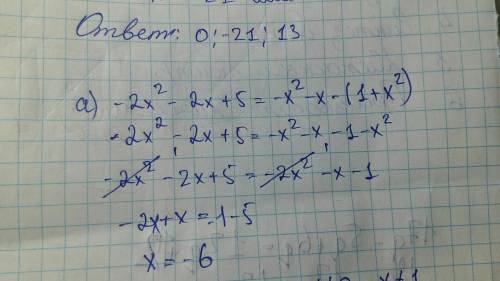 Ответ: 0; -21; 13
а) -2x² - 2x + 5 = -x² - x - (1 + x²)
-2x² - 2x + 5 = -x² - x - 1 - x²
-2x² - 2x + 5 = -2x² - x - 1
-2x + x = -1 - 5
x = -6